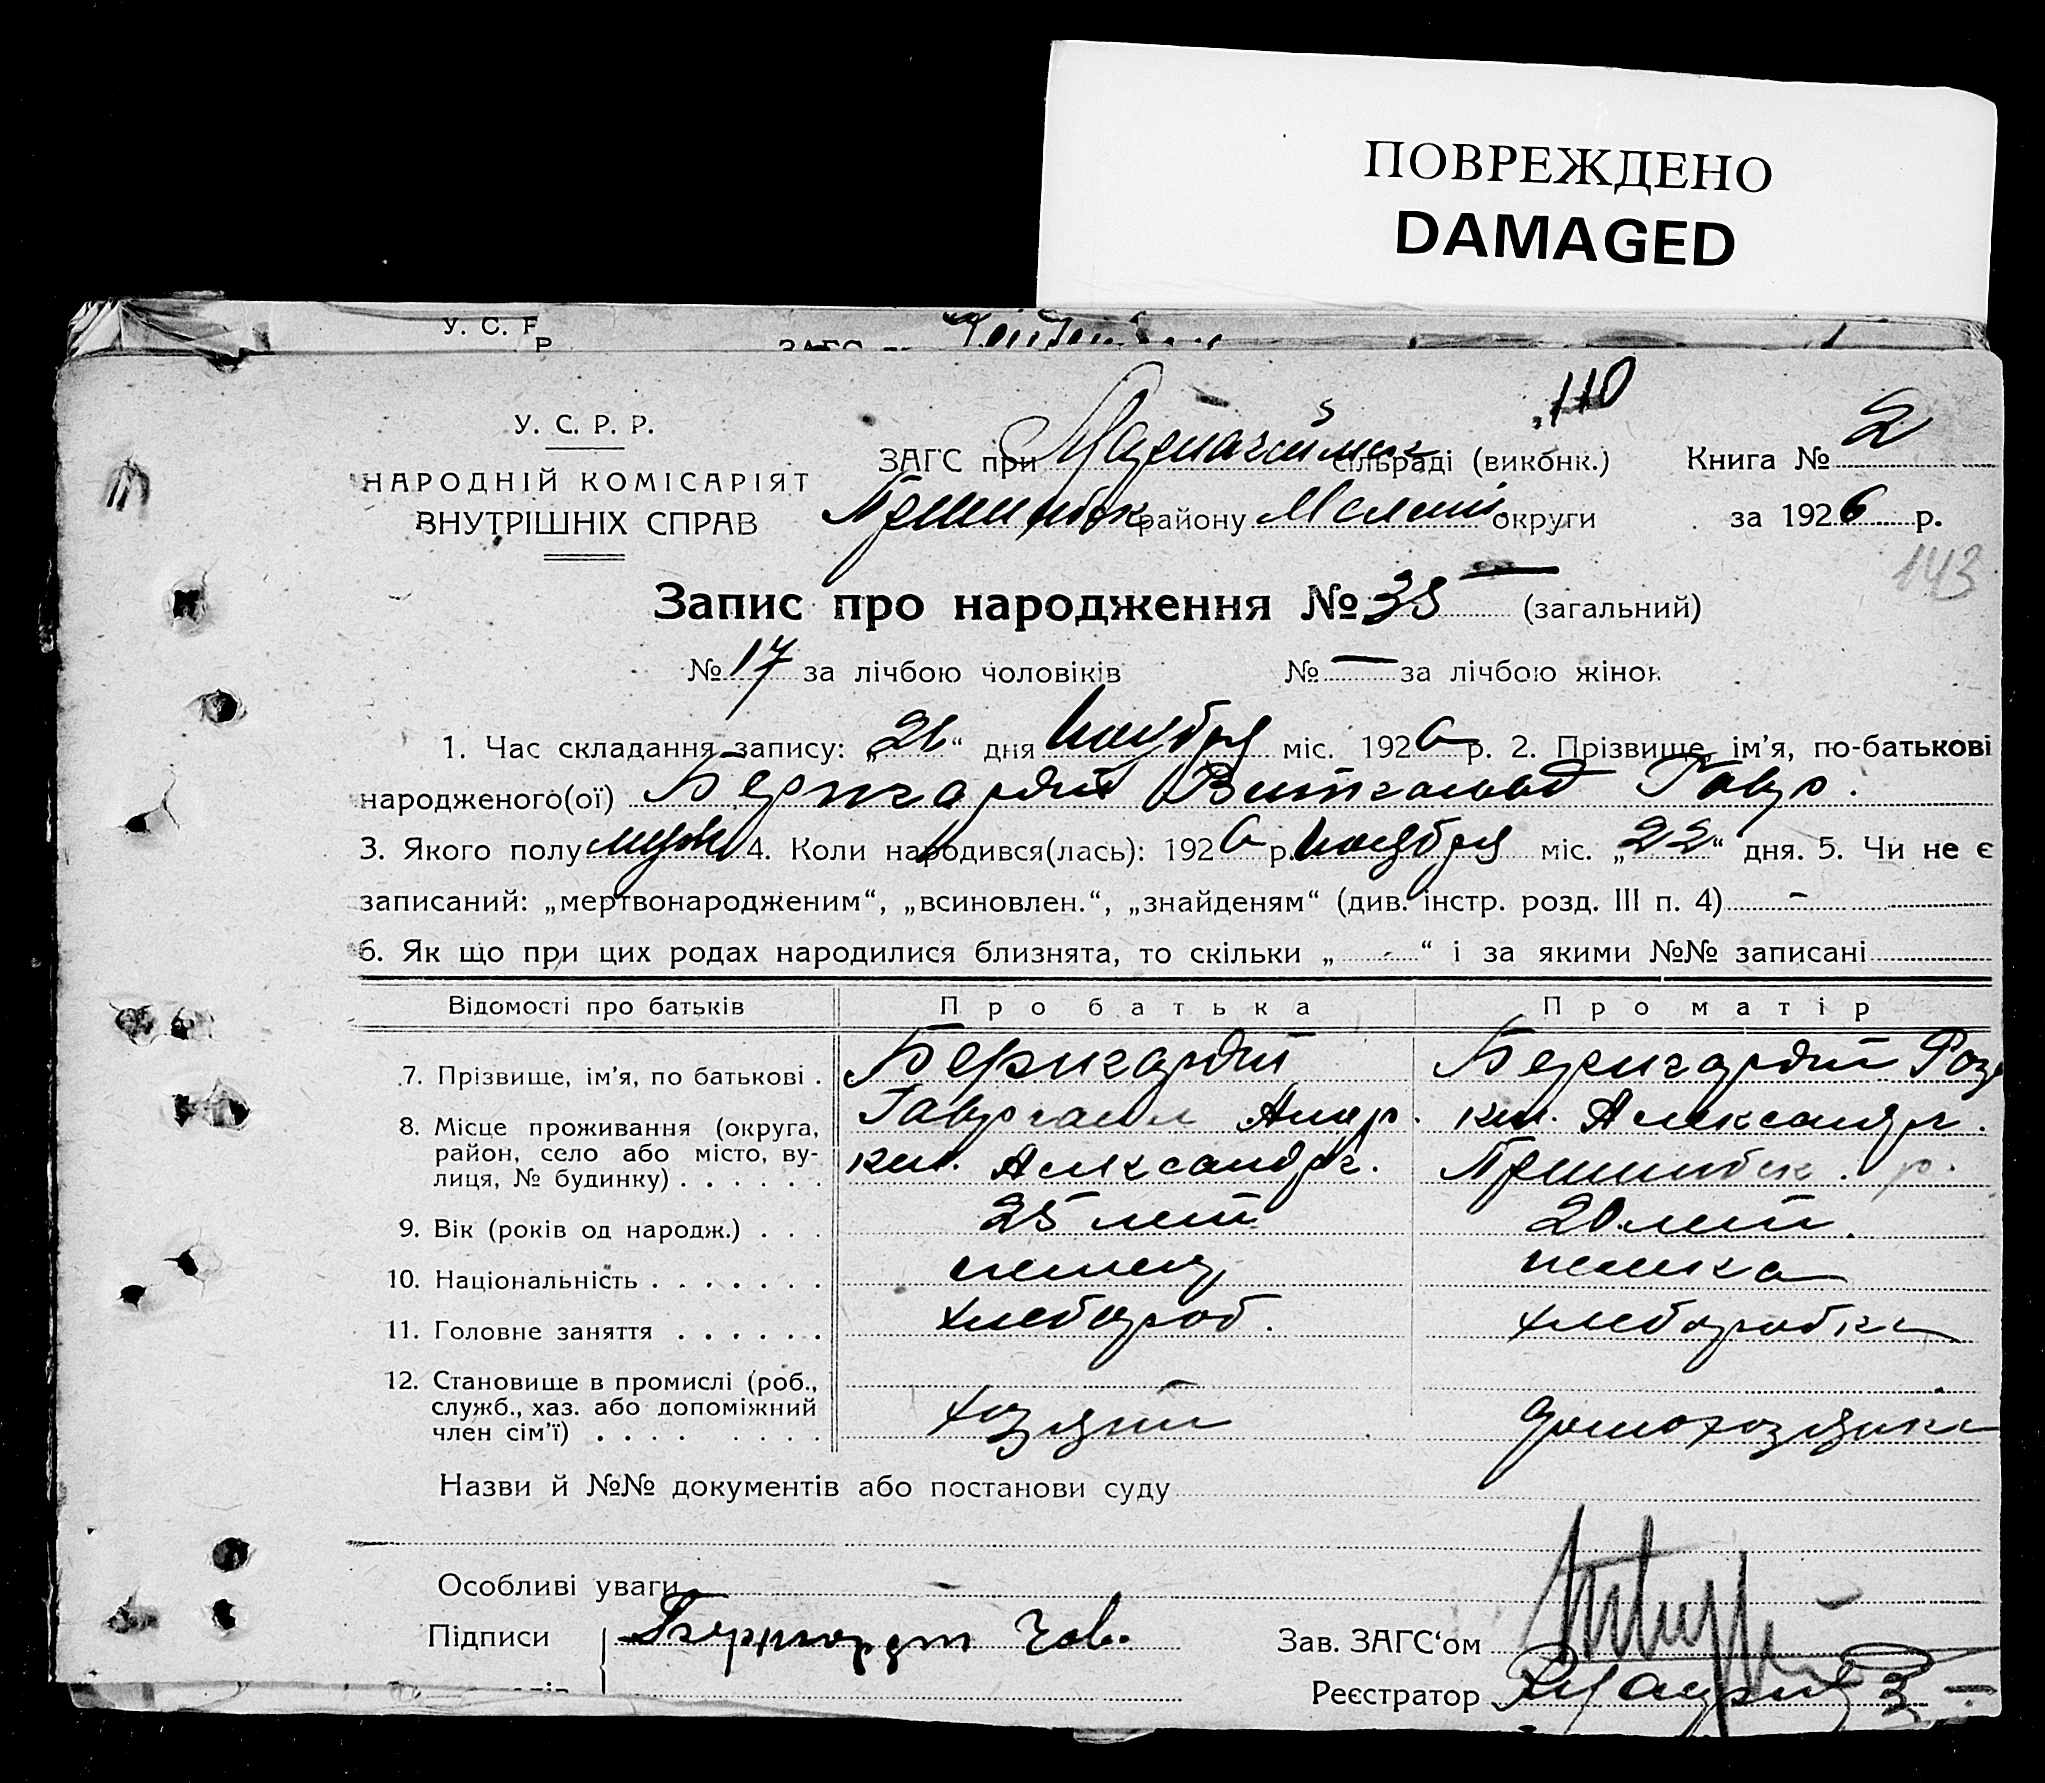 ПОВРЕЖДЕНО
DAMAGED
У. С. Р
Р
110
У. С. Р. Р.
ЗАГС при сільраді (виконк.) Книга № 2
НАРОДНІЙ КОМІСАРІЯТ
ВНУТРІШНІХ СПРАВ
Пришибск району Мелит. округи за 1926 р.
143
Запис про народження № 35 — (загальний)
№ 17 за лічбою чоловіків № — за лічбою жінок
1. Час складання запису: „26“ дня Ноября міс. 1926 р. 2. Прізвище, ім’я, по-батькові
народженого(ої) Бернгардт Витгольд Гавр.
3. Якого полу муж 4. Коли народився(лась): 1926 р. Ноября міс. „22“ дня. 5. Чи не є
записаний: „мертвонародженим“, „всиновлен.“, „знайденям“ (див. інстр. розд. III п. 4) -
6. Як що при цих родах народилися близнята, то скільки „ - “ і за якими №№ записані
Відомості про батьків Про батька Про матір
7. Прізвище, ім’я, по батькові . Бернгардт Бернгардт Роз
8. Місце проживання (округа, район, село або місто, вулиця, № будинку) . . . . . .
кол. Александрг. кол. Александрг.
Пришибск. р.
9. Вік (років од народж.) . . . 25 лет 20 лет.
10. Національність . . . . . . . немец немка
11. Головне заняття . . . . . . хлебороб. хлеборобка
12. Становище в промислі (роб., служб., хаз. або допоміжний член сім’ї) . . . . . . . . хозяин домохозяйка
Назви й №№ документів або постанови суду
Особливі уваги -
Підписи Бернгардт Гав. Зав. ЗАГС‘ом
Реєстратор